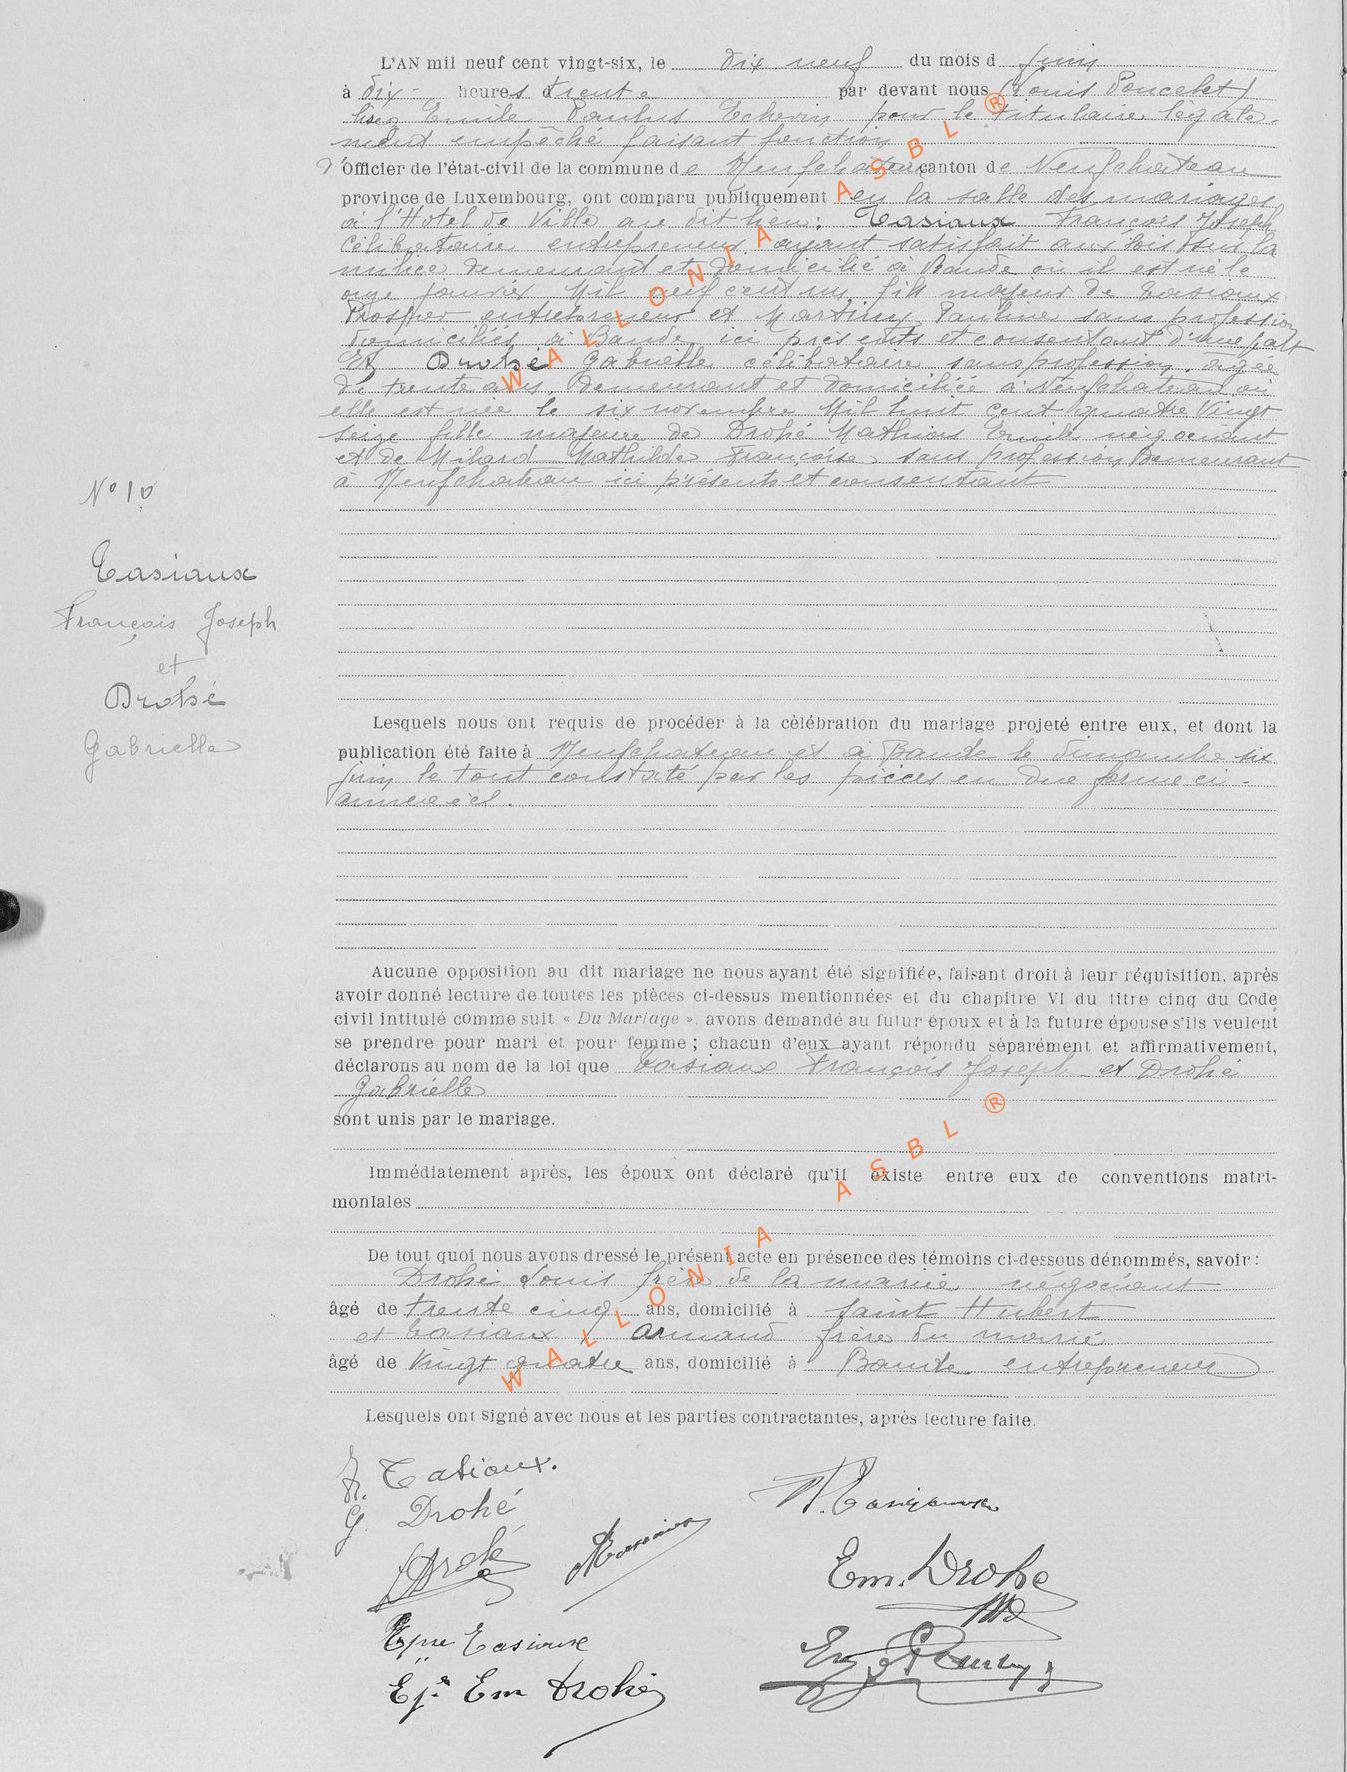 L'AN mil neuf cent vingt-six, le dix neuf du mois d juin
à dix heures trente par devant nous (Louis Poncelet)
Emile Paulus Echevin pour le titulaire légale-
ment empêché faisant fonction
d'Officier de l'état-civil de la commune de Neufchateau canton de Neufchateau
province de Luxembourg, ont comparu publiquement en la salle des mariages
à l'Hotel de Ville au dit lieu: Tasiaux François Joseph
célibataire entrepreneur ayant satisfait aux lois sur la
milice demeurant et domicilié à Bande où il est né le
onze janvier Mil neuf cent un, fils majeur de Tasiaux
Prosper entrepreneur et Martiny Pauline sans profession
domiciliés à Bande, ici présents et consentant d'une part
Et Drohé Gabrielle célibataire sans profession, âgée
de trente ans, demeurant et domiciliée à Neufchateau où
elle est née le six novembre Mil huit cent quatre Vingt
seize fille majeure de Drohé Mathias Emile négociant
et de Milard Mathilde Françoise sans profession demeurant
à Neufchateau ici présents et consentant
N° 10
Tasiaux
François Joseph
et
Drohé
Gabrielle
Lesquels nous ont requis de procéder à la célébration du mariage projeté entre eux, et dont la
publication été faite à Neufchateau et à Bande le dimanche six
juin le tout constaté par les pièces en due forme ci-
annexées.
Aucune opposition au dit mariage ne nous ayant été signifiée, faisant droit à leur réquisition, après
avoir donné lecture de toutes les pièces ci-dessus mentionnées et du chapitre VI du titre cinq du Code
civil intitulé comme suit « Du Mariage », avons demandé au futur époux et à la future épouse s'ils veulent
se prendre pour mari et pour femme ; chacun d'eux ayant répondu séparément et affirmativement,
déclarons au nom de la loi que Tasiaux François Joseph et Drohé
Gabrielle
sont unis par le mariage.
Immédiatement après, les époux ont déclaré qu'il existe entre eux de conventions matri-
moniales
De tout quoi nous avons dressé le présent acte en présence des témoins ci-dessous dénommés, savoir :
Drohé Louis frère de la mariée négociant
âgé de trente cinq ans, domicilié à Saint Hubert
et Tasiaux Armand frère du marié
âgé de Vingt quatre ans, domicilié à Bande entrepreneur
Lesquels ont signé avec nous et les parties contractantes, après lecture faite.
Tasiaux.
G. Drohé
P. Tasiaux
LDrohé
ATasiaux
Em. Drohé
Epse Tasiaux
Ese Em Drohé
WALLONIA ASBL ®
WALLONIA ASBL ®